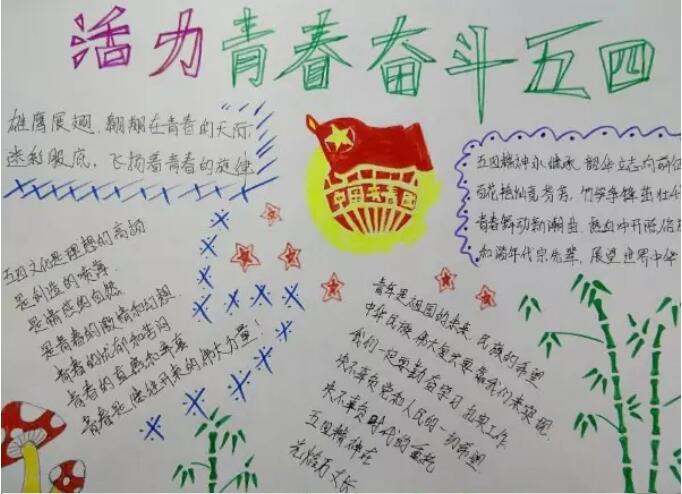 活力青春奋斗五四
雄鹰展翅，翱翔在青春的天际
迷彩服底，飞扬着青春的旋律
中国共青团
五四精神永继承，韶华立志向前
百花
青春舞动新潮曲，热血
和谐年代宗先辈，展望世界中华
五四文化是理想的高扬
是创造的喷薄
是情感的自然
是青春的激情和幻想
青春的忧郁和苦闷
青春的直率和
青春是继往开来的伟大力量！
青年是祖国的未来，民族的希望
中华民族伟大复兴要靠我们来实现
我们一定要勤奋学习 扎实工作
决不辜负党和人民的一切希望
决不辜负时代的重托
五四精神在
光焰万丈长